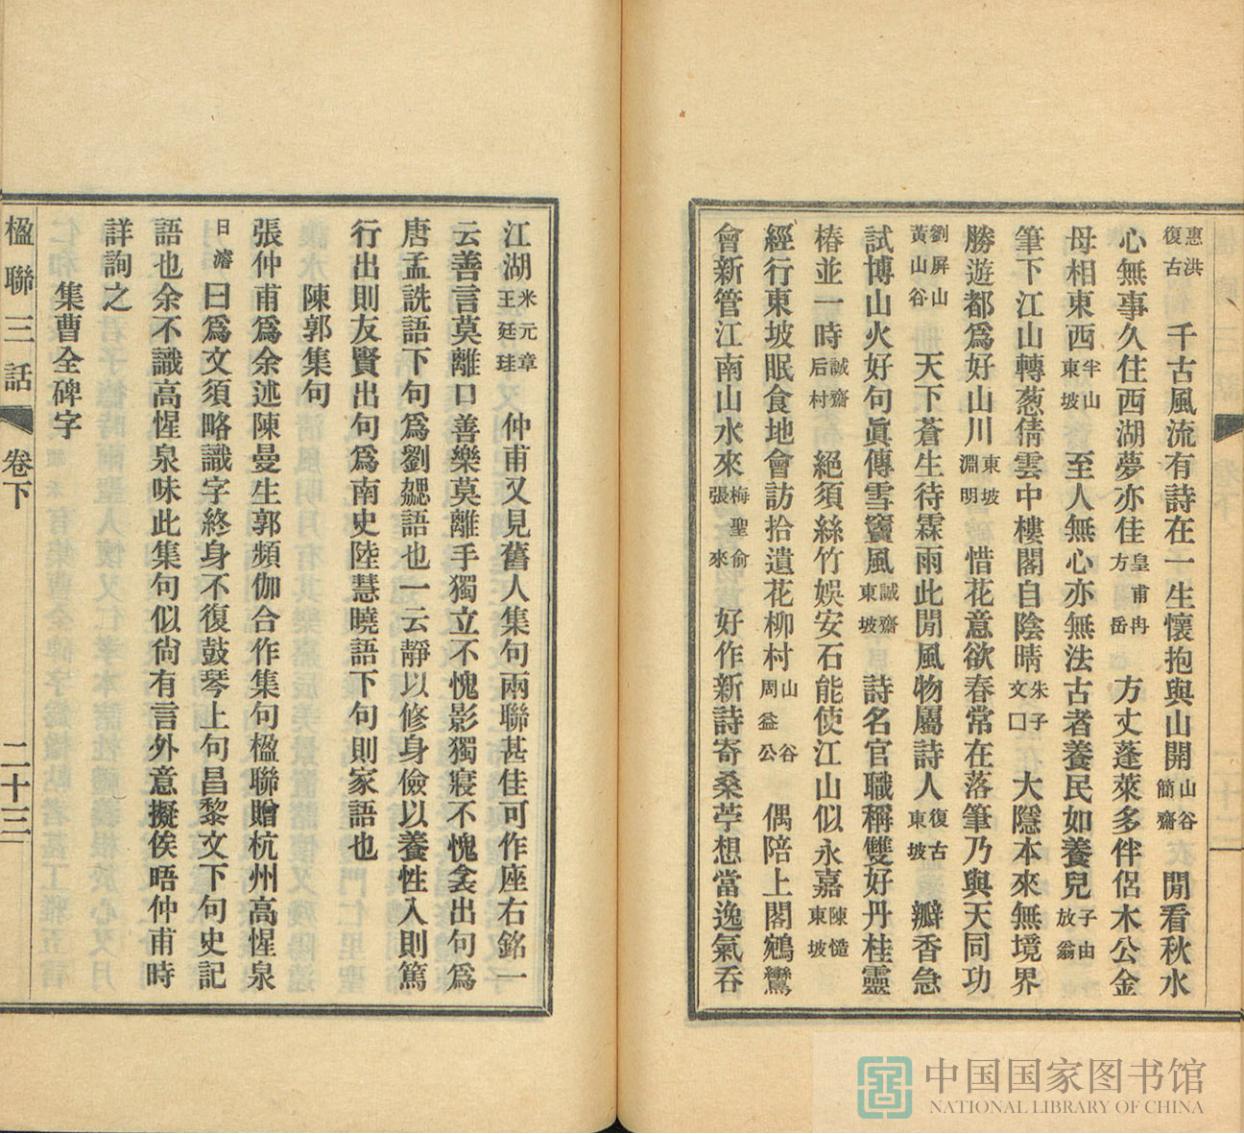 惠洪復古　千古風流有詩在一生懷抱與山開山谷簡齋　閒看秋水
心無事久住西湖夢亦佳皇甫冉方岳　方丈蓬萊多伴侶木公金
母相東西半山東坡　至人無心亦無法古者養民如養兒子由放翁
筆下江山轉葱倩雲中樓閣自陰晴朱子文囗　大隱本來無境界
勝遊都爲好山川東坡淵明　惜花意欲春常在落筆乃與天同功
劉屏山黃山谷　天下蒼生待霖雨此閒風物屬詩人復古東坡　瓣香急
試博山火好句眞傳雪竇風誠齋東坡　詩名官職稱雙好丹桂靈
椿並一時誠齋后村　絕須絲竹娛安石能使江山似永嘉陳慥東坡
經行東坡眠食地會訪拾遺花柳村山谷周益公　偶陪上閣鵷鸞
會新管江南山水來梅聖俞張來　好作新詩寄桑苧想當逸氣吞
江湖米元章王廷珪　仲甫又見舊人集句兩聯甚佳可作座右銘一
云善言莫離口善樂莫離手獨立不愧影獨寢不愧衾出句爲
唐孟詵語下句爲劉勰語也一云靜以修身儉以養性入則篤
行出則友賢出句爲南史陸慧曉語下句則家語也
陳郭集句
張仲甫爲余述陳曼生郭頻伽合作集句楹聯贈杭州高惺泉
日濬曰爲文須略識字終身不復鼓琴上句昌黎文下句史記
語也余不識高惺泉味此集句似尙有言外意擬俟晤仲甫時
詳詢之
集曹全碑字
楹聯三話　卷下　二十三
中国国家图书馆
NATIONAL LIBRARY OF CHINA